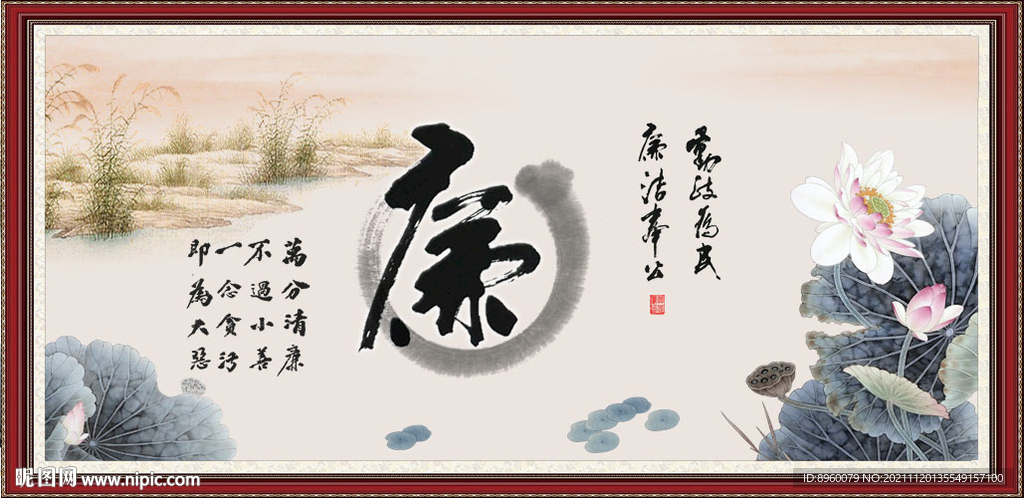 勤政为民
廉洁奉公
廉
萬分清廉
不過小善
一念貪污
即為大惡
昵图网 www.nipic.com
ID:8960079 NO:20211120135549157100